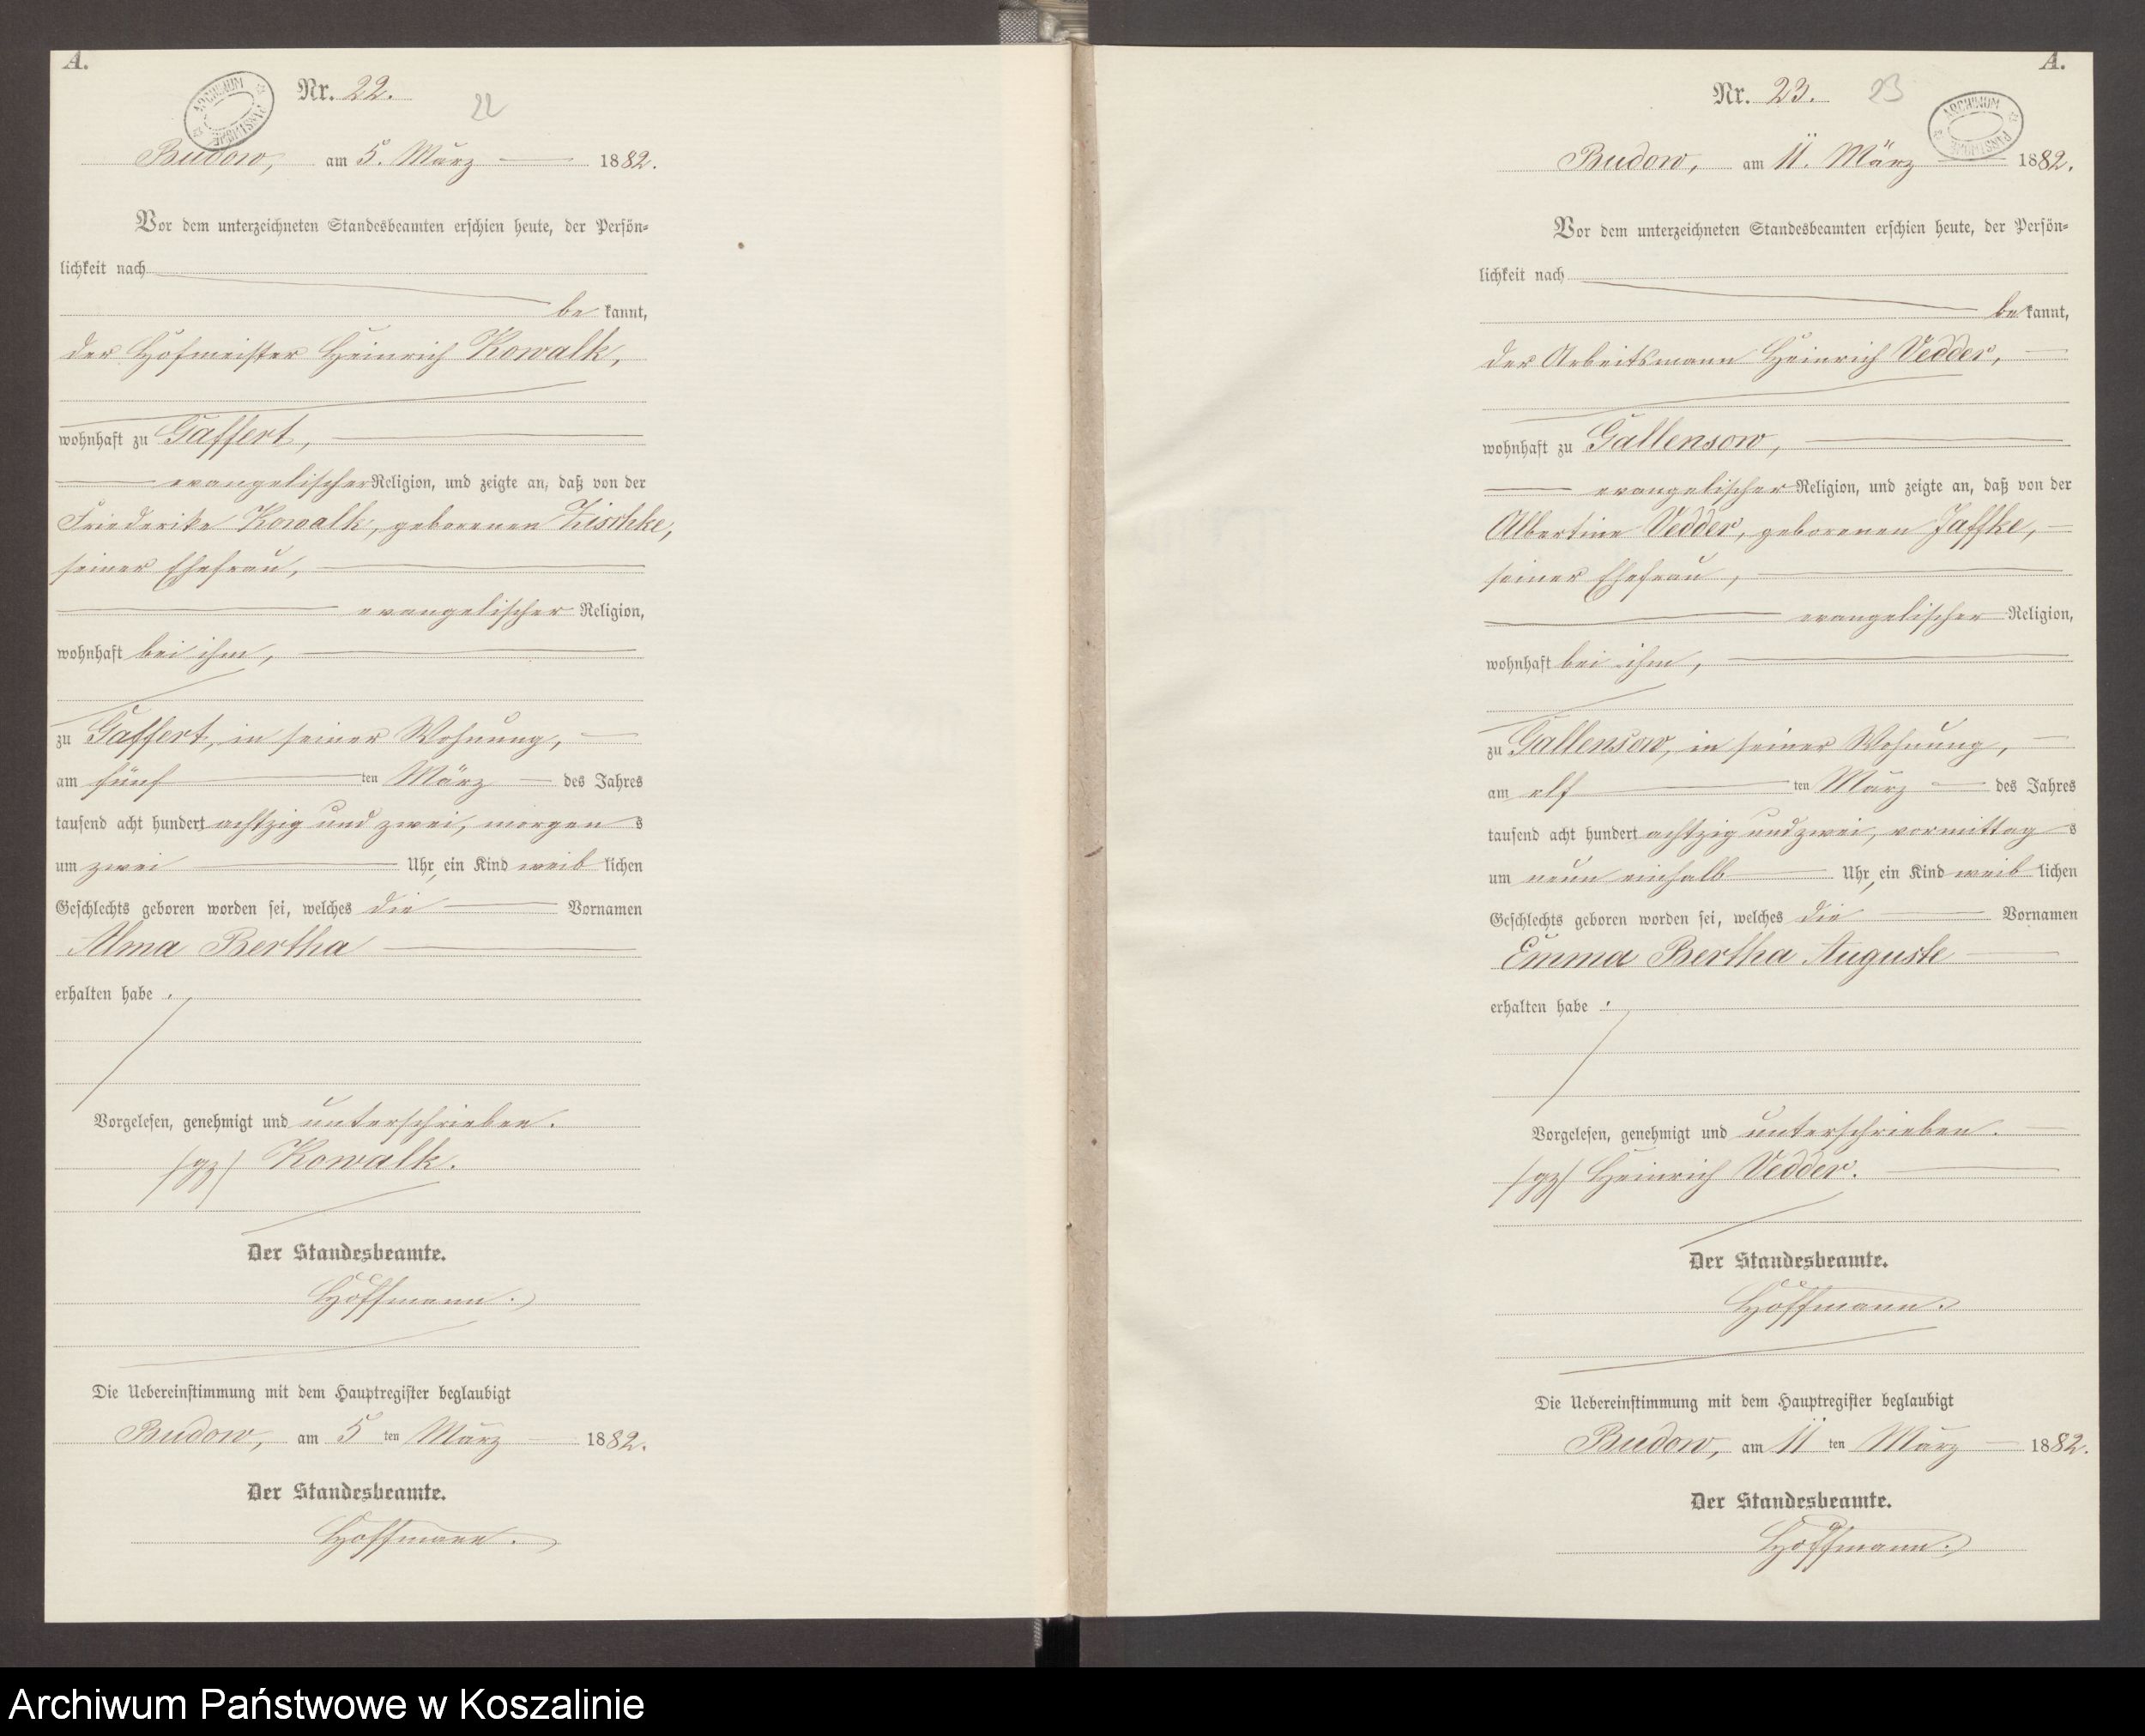 A.
Nr. 22.
22
ARCHIWUM PAŃSTWOWE
Budow, am 5. März 1882.
Vor dem unterzeichneten Standesbeamten erschien heute, der Persön-
lichkeit nach
be kannt,
der Hofmeister Heinrich Kowalk,
wohnhaft zu Gaffert,
evangelischer Religion, und zeigte an, daß von der
Friederike Kowalk, geborenen Zischke,
seiner Ehefrau,
evangelischer Religion,
wohnhaft bei ihm,
zu Gaffert, in seiner Wohnung,
am fünf ten März des Jahres
tausend acht hundert achtzig und zwei, morgen s
um zwei Uhr, ein Kind weib lichen
Geschlechts geboren worden sei, welches die Vornamen
Alma Bertha
erhalten habe.
Vorgelesen, genehmigt und unterschrieben.
/gz/ Kowalk.
Der Standesbeamte.
Hoffmann.
Die Uebereinstimmung mit dem Hauptregister beglaubigt
Budow, am 5 ten März 1882.
Der Standesbeamte.
Hoffmann.
A.
Nr. 23.
23
ARCHIWUM PAŃSTWOWE
Budow, am 11. März 1882.
Vor dem unterzeichneten Standesbeamten erschien heute, der Persön-
lichkeit nach
be kannt,
der Arbeitsmann Heinrich Vedder,
wohnhaft zu Gallensow,
evangelischer Religion, und zeigte an, daß von der
Albertine Vedder, geborenen Jaffke,
seiner Ehefrau,
evangelischer Religion,
wohnhaft bei ihm,
zu Gallensow, in seiner Wohnung,
am elf ten März des Jahres
tausend acht hundert achtzig und zwei, vormittag s
um neun einhalb Uhr, ein Kind weib lichen
Geschlechts geboren worden sei, welches die Vornamen
Emma Bertha Auguste
erhalten habe.
Vorgelesen, genehmigt und unterschrieben.
/gz/ Heinrich Vedder.
Der Standesbeamte.
Hoffmann.
Die Uebereinstimmung mit dem Hauptregister beglaubigt
Budow, am 11 ten März 1882.
Der Standesbeamte.
Hoffmann.
Archiwum Państwowe w Koszalinie